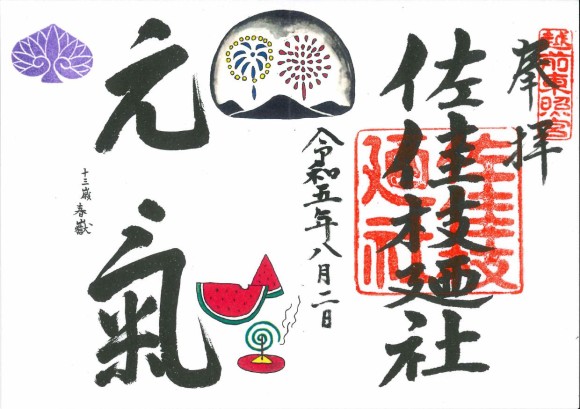 越前東照宮
奉拝
佐佳枝廼社
佐佳枝廼社
令和五年八月二日
元氣
十三歳 春嶽